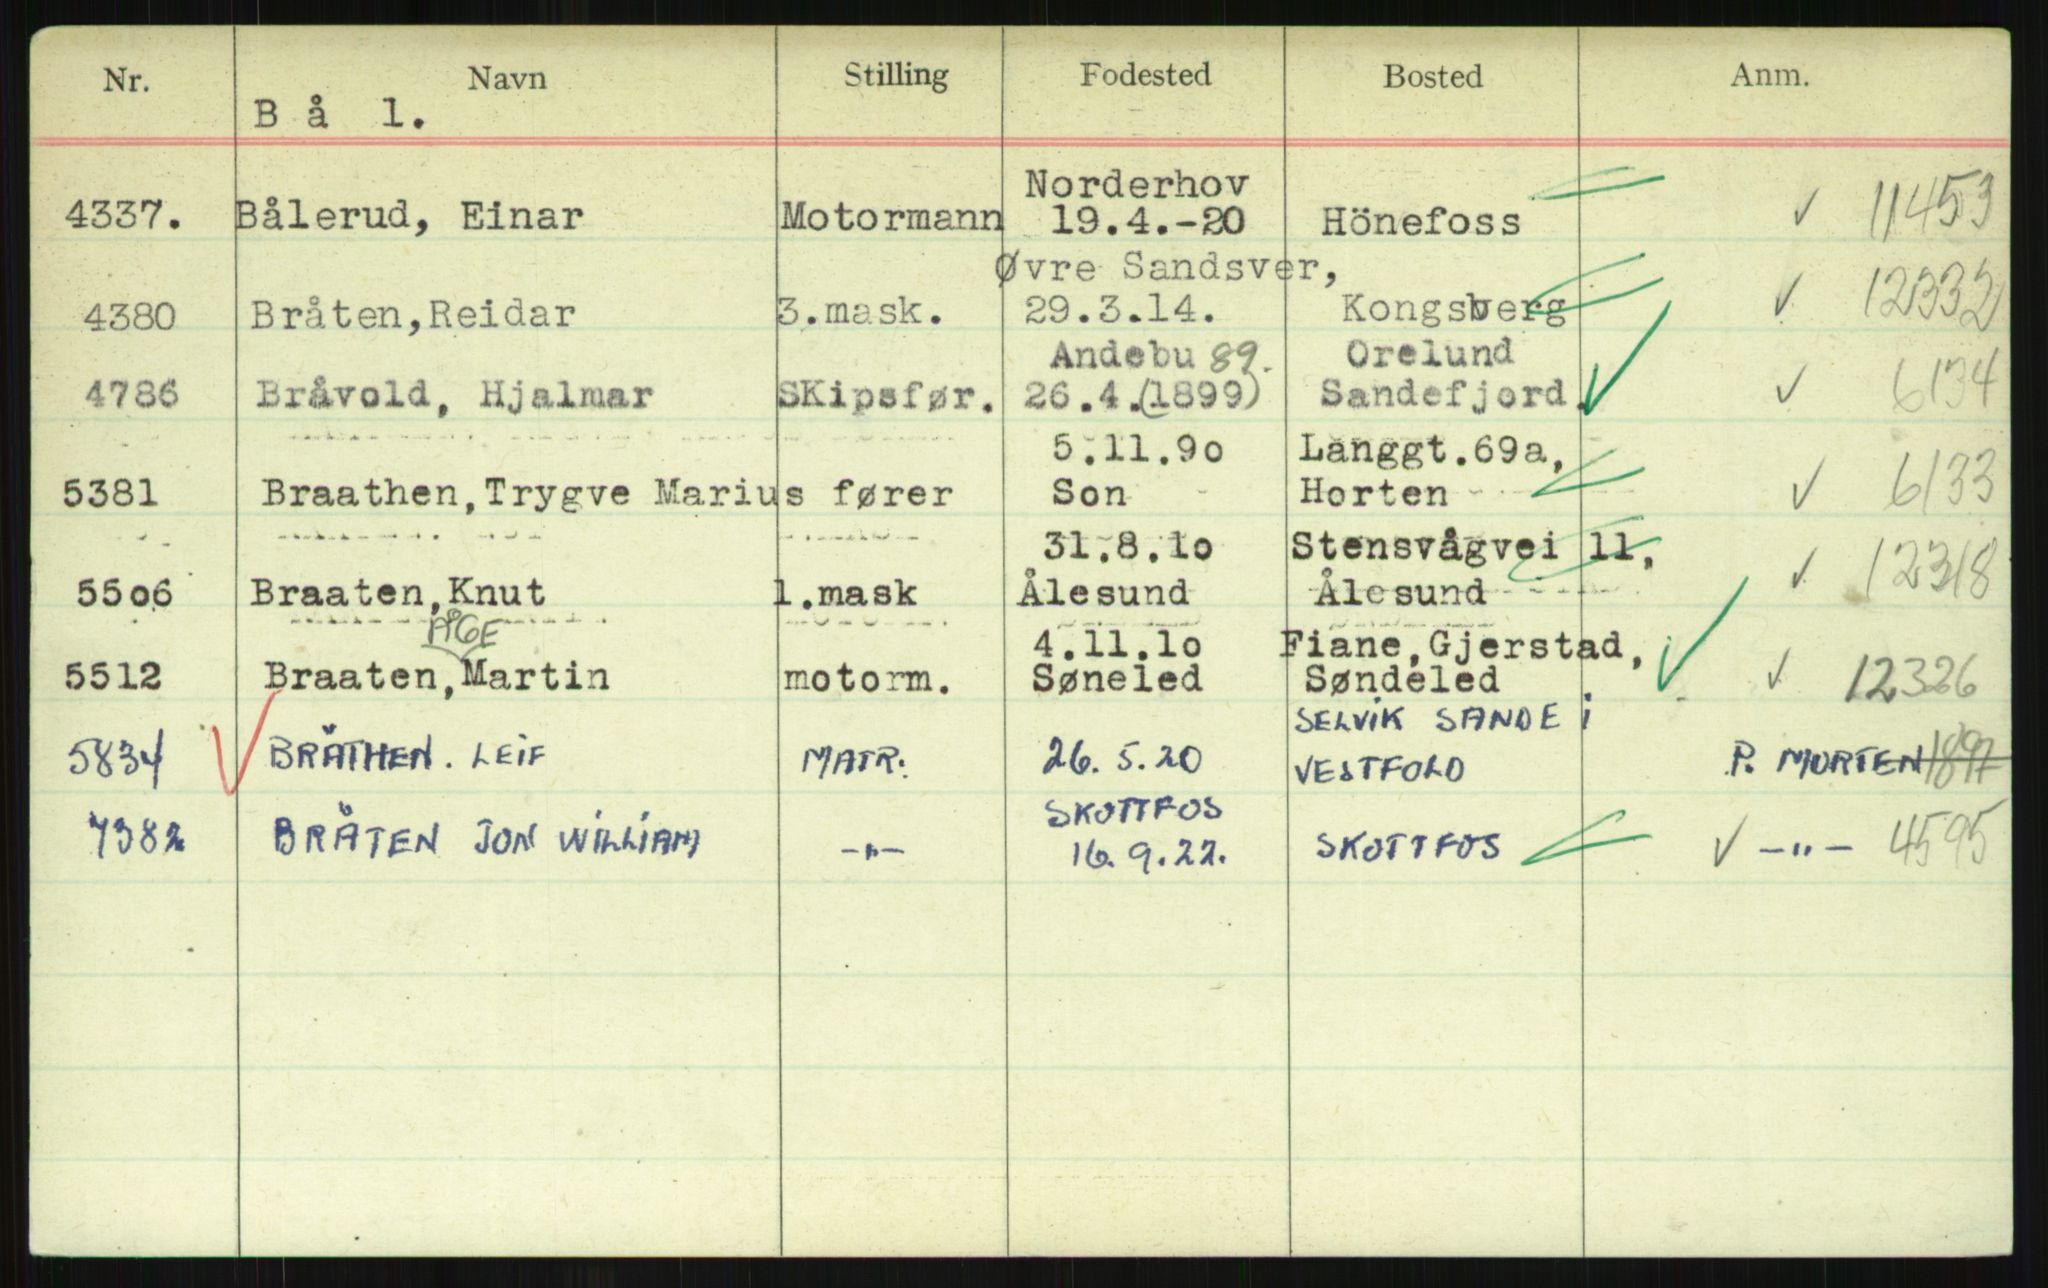 Nr. Navn Stilling Fodested Bosted Anm.
Bå 1.
Norderhov
4337. Bålerud, Einar Motormann 19.4.-20 Hönefoss ✓ 11453
Øvre Sandsver,
4380 Bråten,Reidar 3.mask. 29.3.14. Kongsberg ✓ 12332
Andebu 89. Orelund
4786 Bråvold, Hjalmar SKipsfør. 26.4.(1899) Sandefjord. ✓ 6134
5.11.9o Langgt.69a,
5381 Braathen,Trygve Marius fører Son Horten ✓ 6133
31.8.1o Stensvågvei 11,
55o6 Braaten,Knut 1.mask Ålesund Ålesund ✓ 12318
ÅGE
4.11.1o Fiane,Gjerstad,
5512 Braaten,Martin motorm. Søneled Søndeled ✓ 12326
SELVIK SANDE i
5834 BRÅTHEN. LEIF MATR. 26.5.20 VESTFOLD P. MORTEN 1897
SKOTTFOS
7382 BRÅTEN JON WILLIAM -"- 16.9.22. SKOTTFOS ✓ -"- 4595